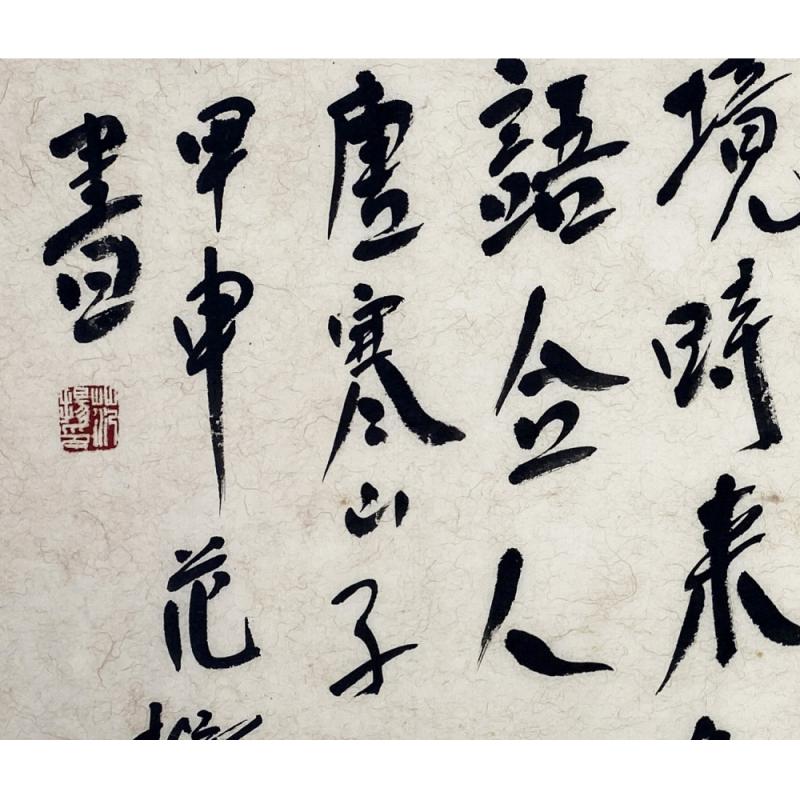 境時来
語人
唐寒山子
甲申范
書